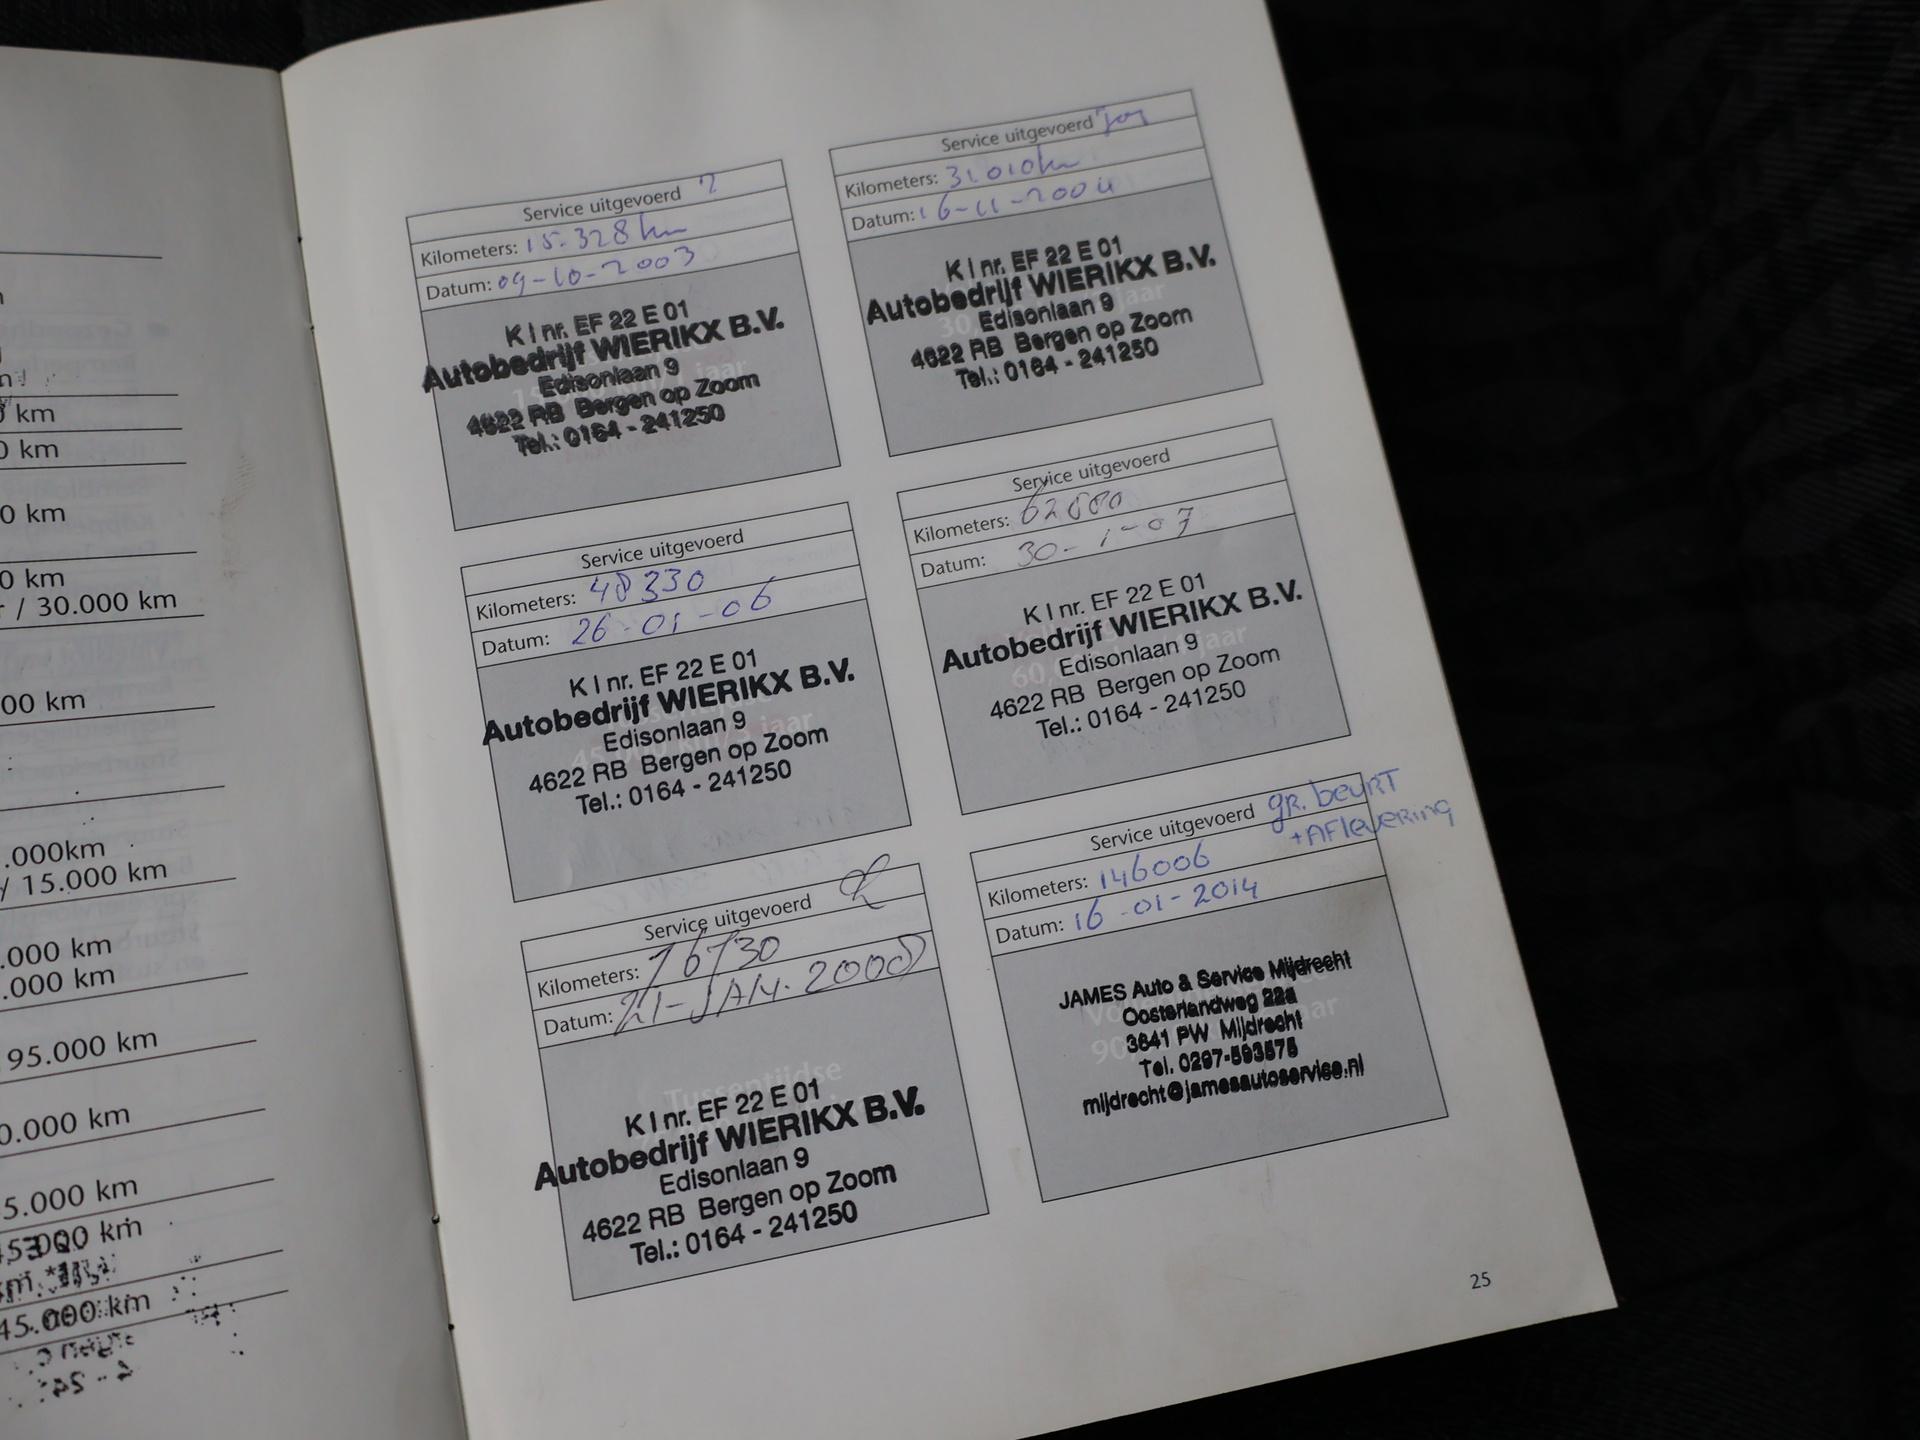 0 km
0 km
0 km
0 km
/ 30.000 km
00 km
.000km
/ 15.000 km
.000 km
.000 km
95.000 km
0.000 km
5.000 km
45.000 km
Service uitgevoerd
Kilometers: 15.328 km
Datum: 09-10-2003
K I nr. EF 22 E 01
Autobedrijf WIERIKX B.V.
Edisonlaan 9
4622 RB Bergen op Zoom
Tel.: 0164 - 241250
Service uitgevoerd
Kilometers: 31.010 km
Datum: 16-11-2004
K I nr. EF 22 E 01
Autobedrijf WIERIKX B.V.
Edisonlaan 9
4622 RB Bergen op Zoom
Tel.: 0164 - 241250
Service uitgevoerd
Kilometers: 48330
Datum: 26-01-06
K I nr. EF 22 E 01
Autobedrijf WIERIKX B.V.
Edisonlaan 9
4622 RB Bergen op Zoom
Tel.: 0164 - 241250
Service uitgevoerd
Kilometers:
Datum: 30-1-07
K I nr. EF 22 E 01
Autobedrijf WIERIKX B.V.
Edisonlaan 9
4622 RB Bergen op Zoom
Tel.: 0164 - 241250
Service uitgevoerd
Kilometers: 76730
Datum: 21-JAN.2008
Tussentijdse
K I nr. EF 22 E 01
Autobedrijf WIERIKX B.V.
Edisonlaan 9
4622 RB Bergen op Zoom
Tel.: 0164 - 241250
Service uitgevoerd gR. beuRT
+AFleveRing
Kilometers: 146006
Datum: 16-01-2014
JAMES Auto & Service Mijdrecht
Oosterlandweg 22a
3641 PW Mijdrecht
Tel. 0297-593575
mijdrecht@jamesautoservice.nl
25